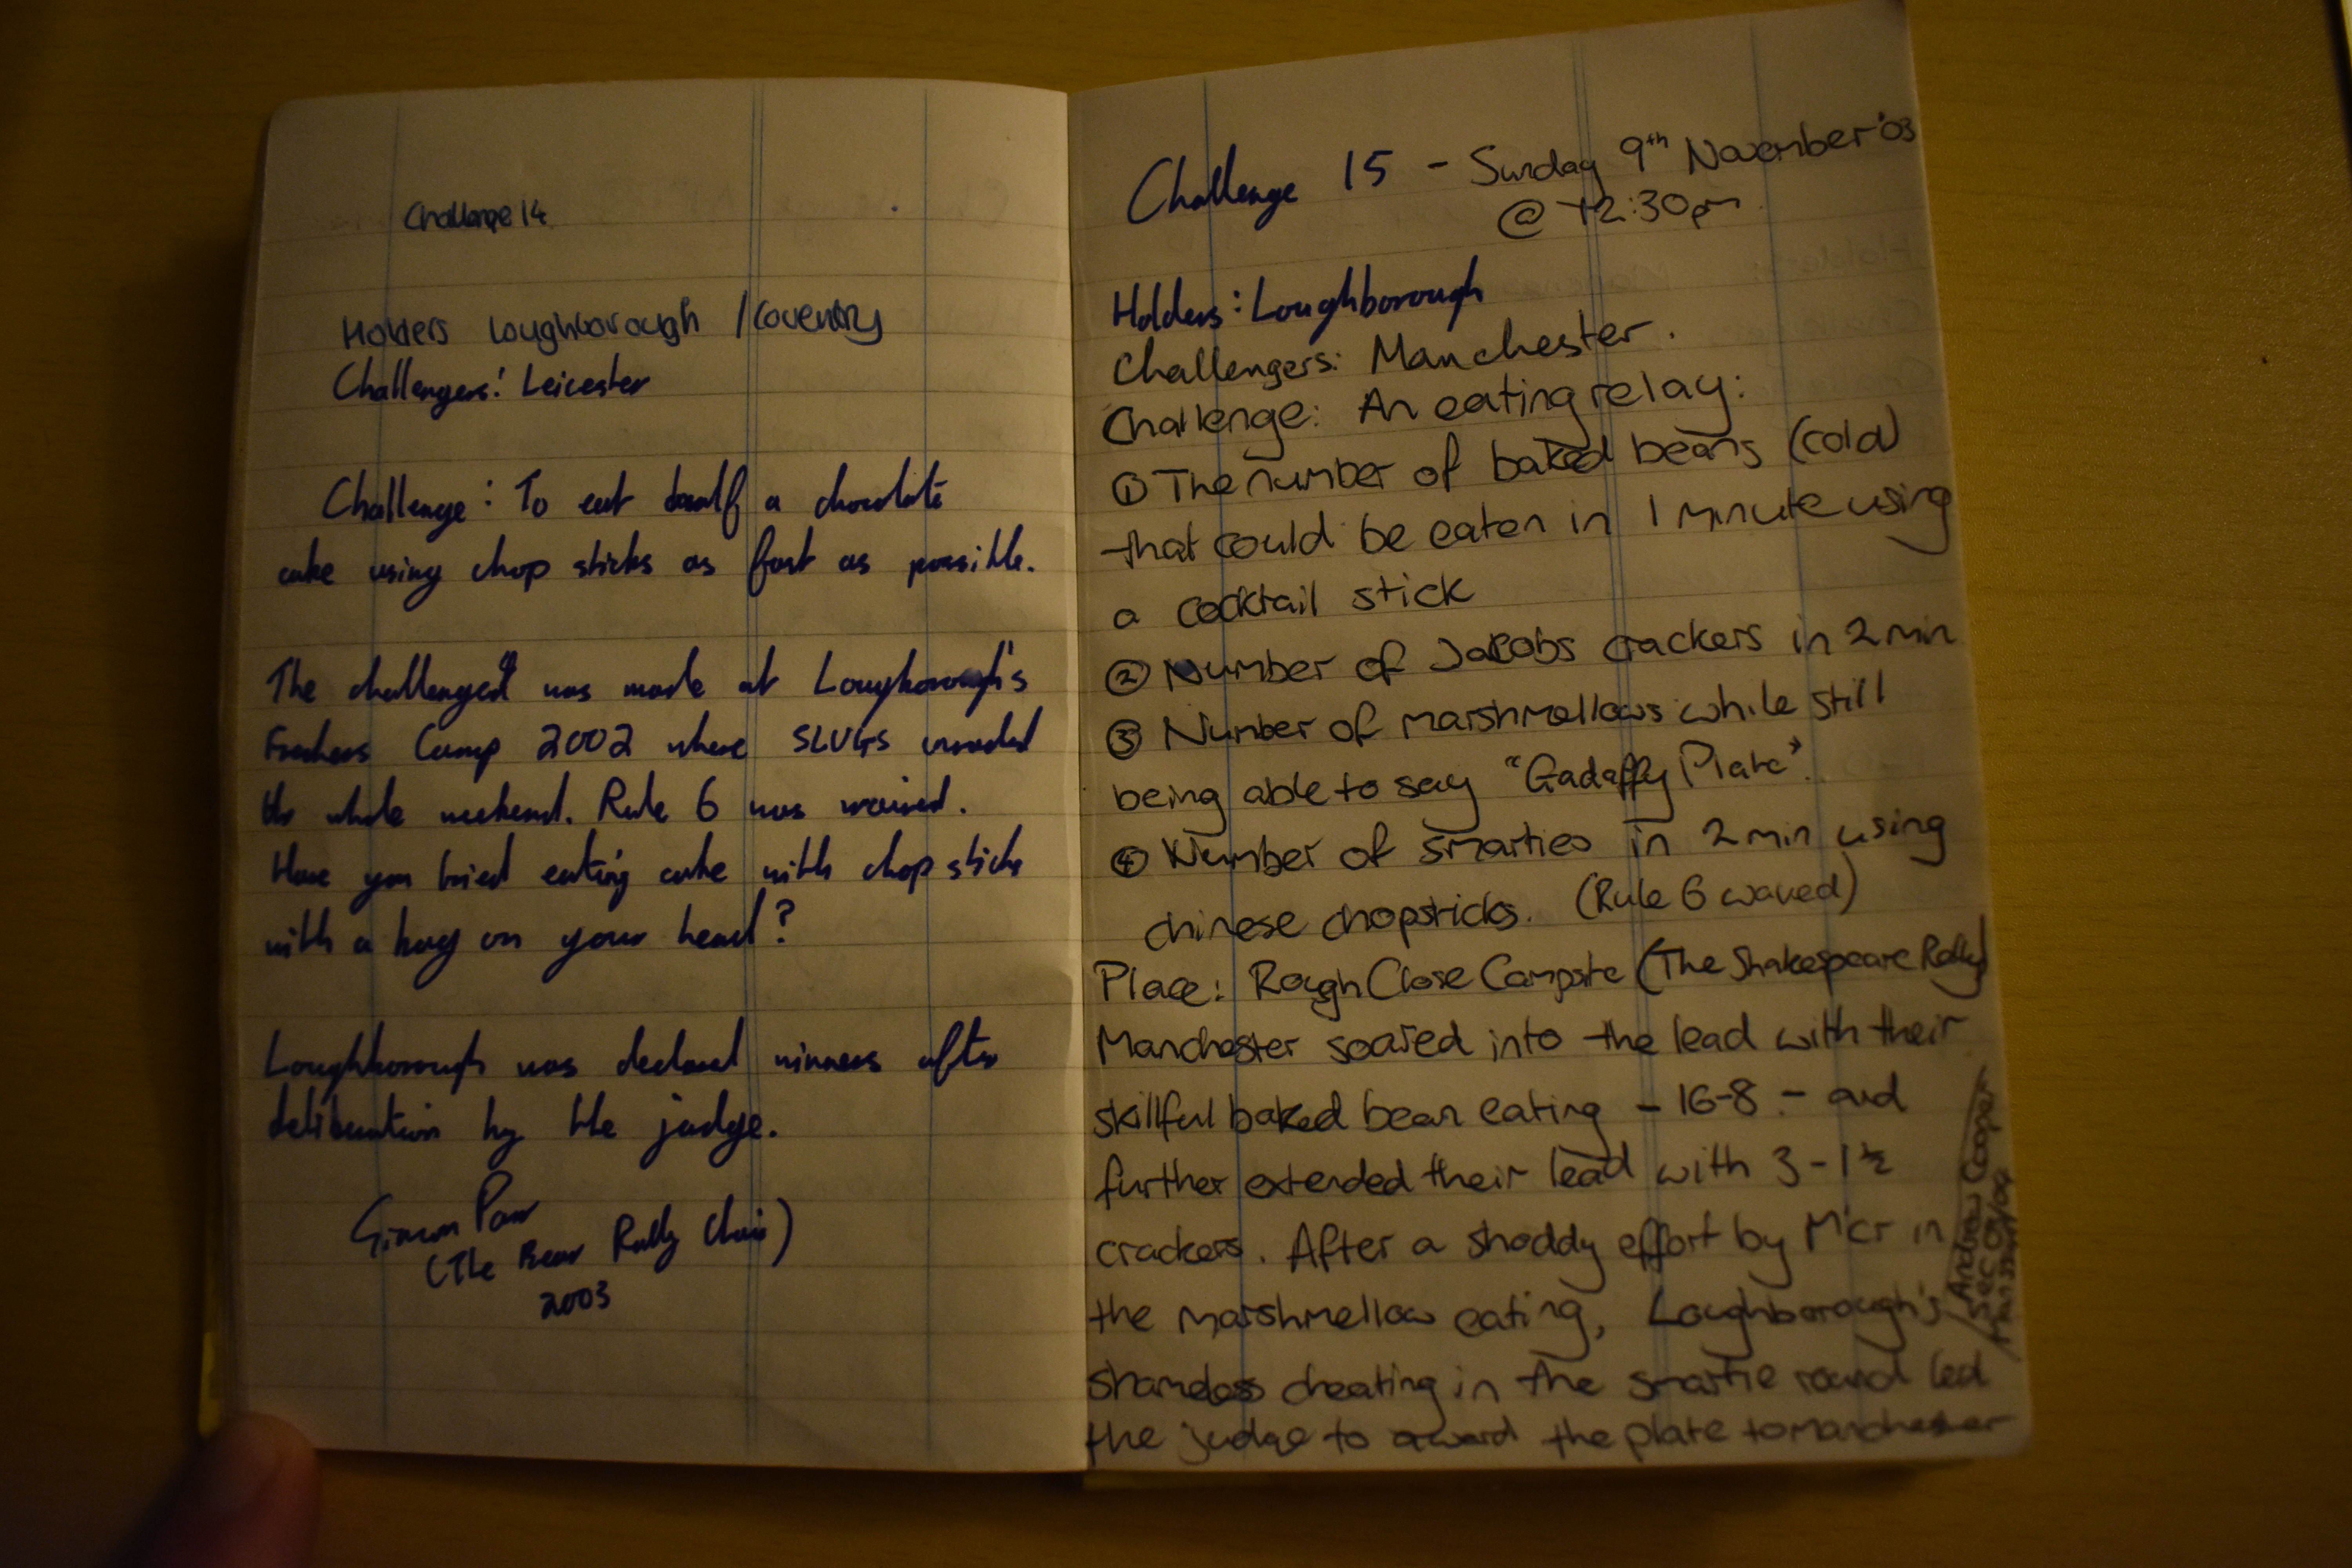 Challenge 14
Holders Loughborough / Coventry
Challengers: Leicester
Challenge: To eat half a chocolate
cake using chop sticks as fast as possible.
The challenged was made at Loughborough's
Freshers Camp 2002 where SLUGS invaded
the whole weekend. Rule 6 was waived.
Have you tried eating cake with chop sticks
with a bag on your head?
Loughborough was declared winners after
deliberation by the judge.
Simon
(The Bear Rally Chair)
2003
Challenge 15 - Sunday 9th November '03
@ 12:30pm
Holders: Loughborough
Challengers: Manchester.
Challenge: An eating relay:
① The number of baked beans (cold)
that could be eaten in 1 minute using
a cocktail stick
② Number of Jacobs crackers in 2 min
③ Number of marshmellows while still
being able to say "Gadaffy Plate".
④ Number of smarties in 2 min using
chinese chopsticks. (Rule 6 waved)
Place: Rough Close Campsite (The Shakespeare Rally)
Manchester soared into the lead with their
skillful baked bean eating - 16-8 - and
further extended their lead with 3 - 1½
crackers. After a shoddy effort by M'cr in
the marshmellow eating, Loughborough's
shameless cheating in the smartie round led
the judge to award the plate to Manchester
Andrew Cooper
Sec 03/04